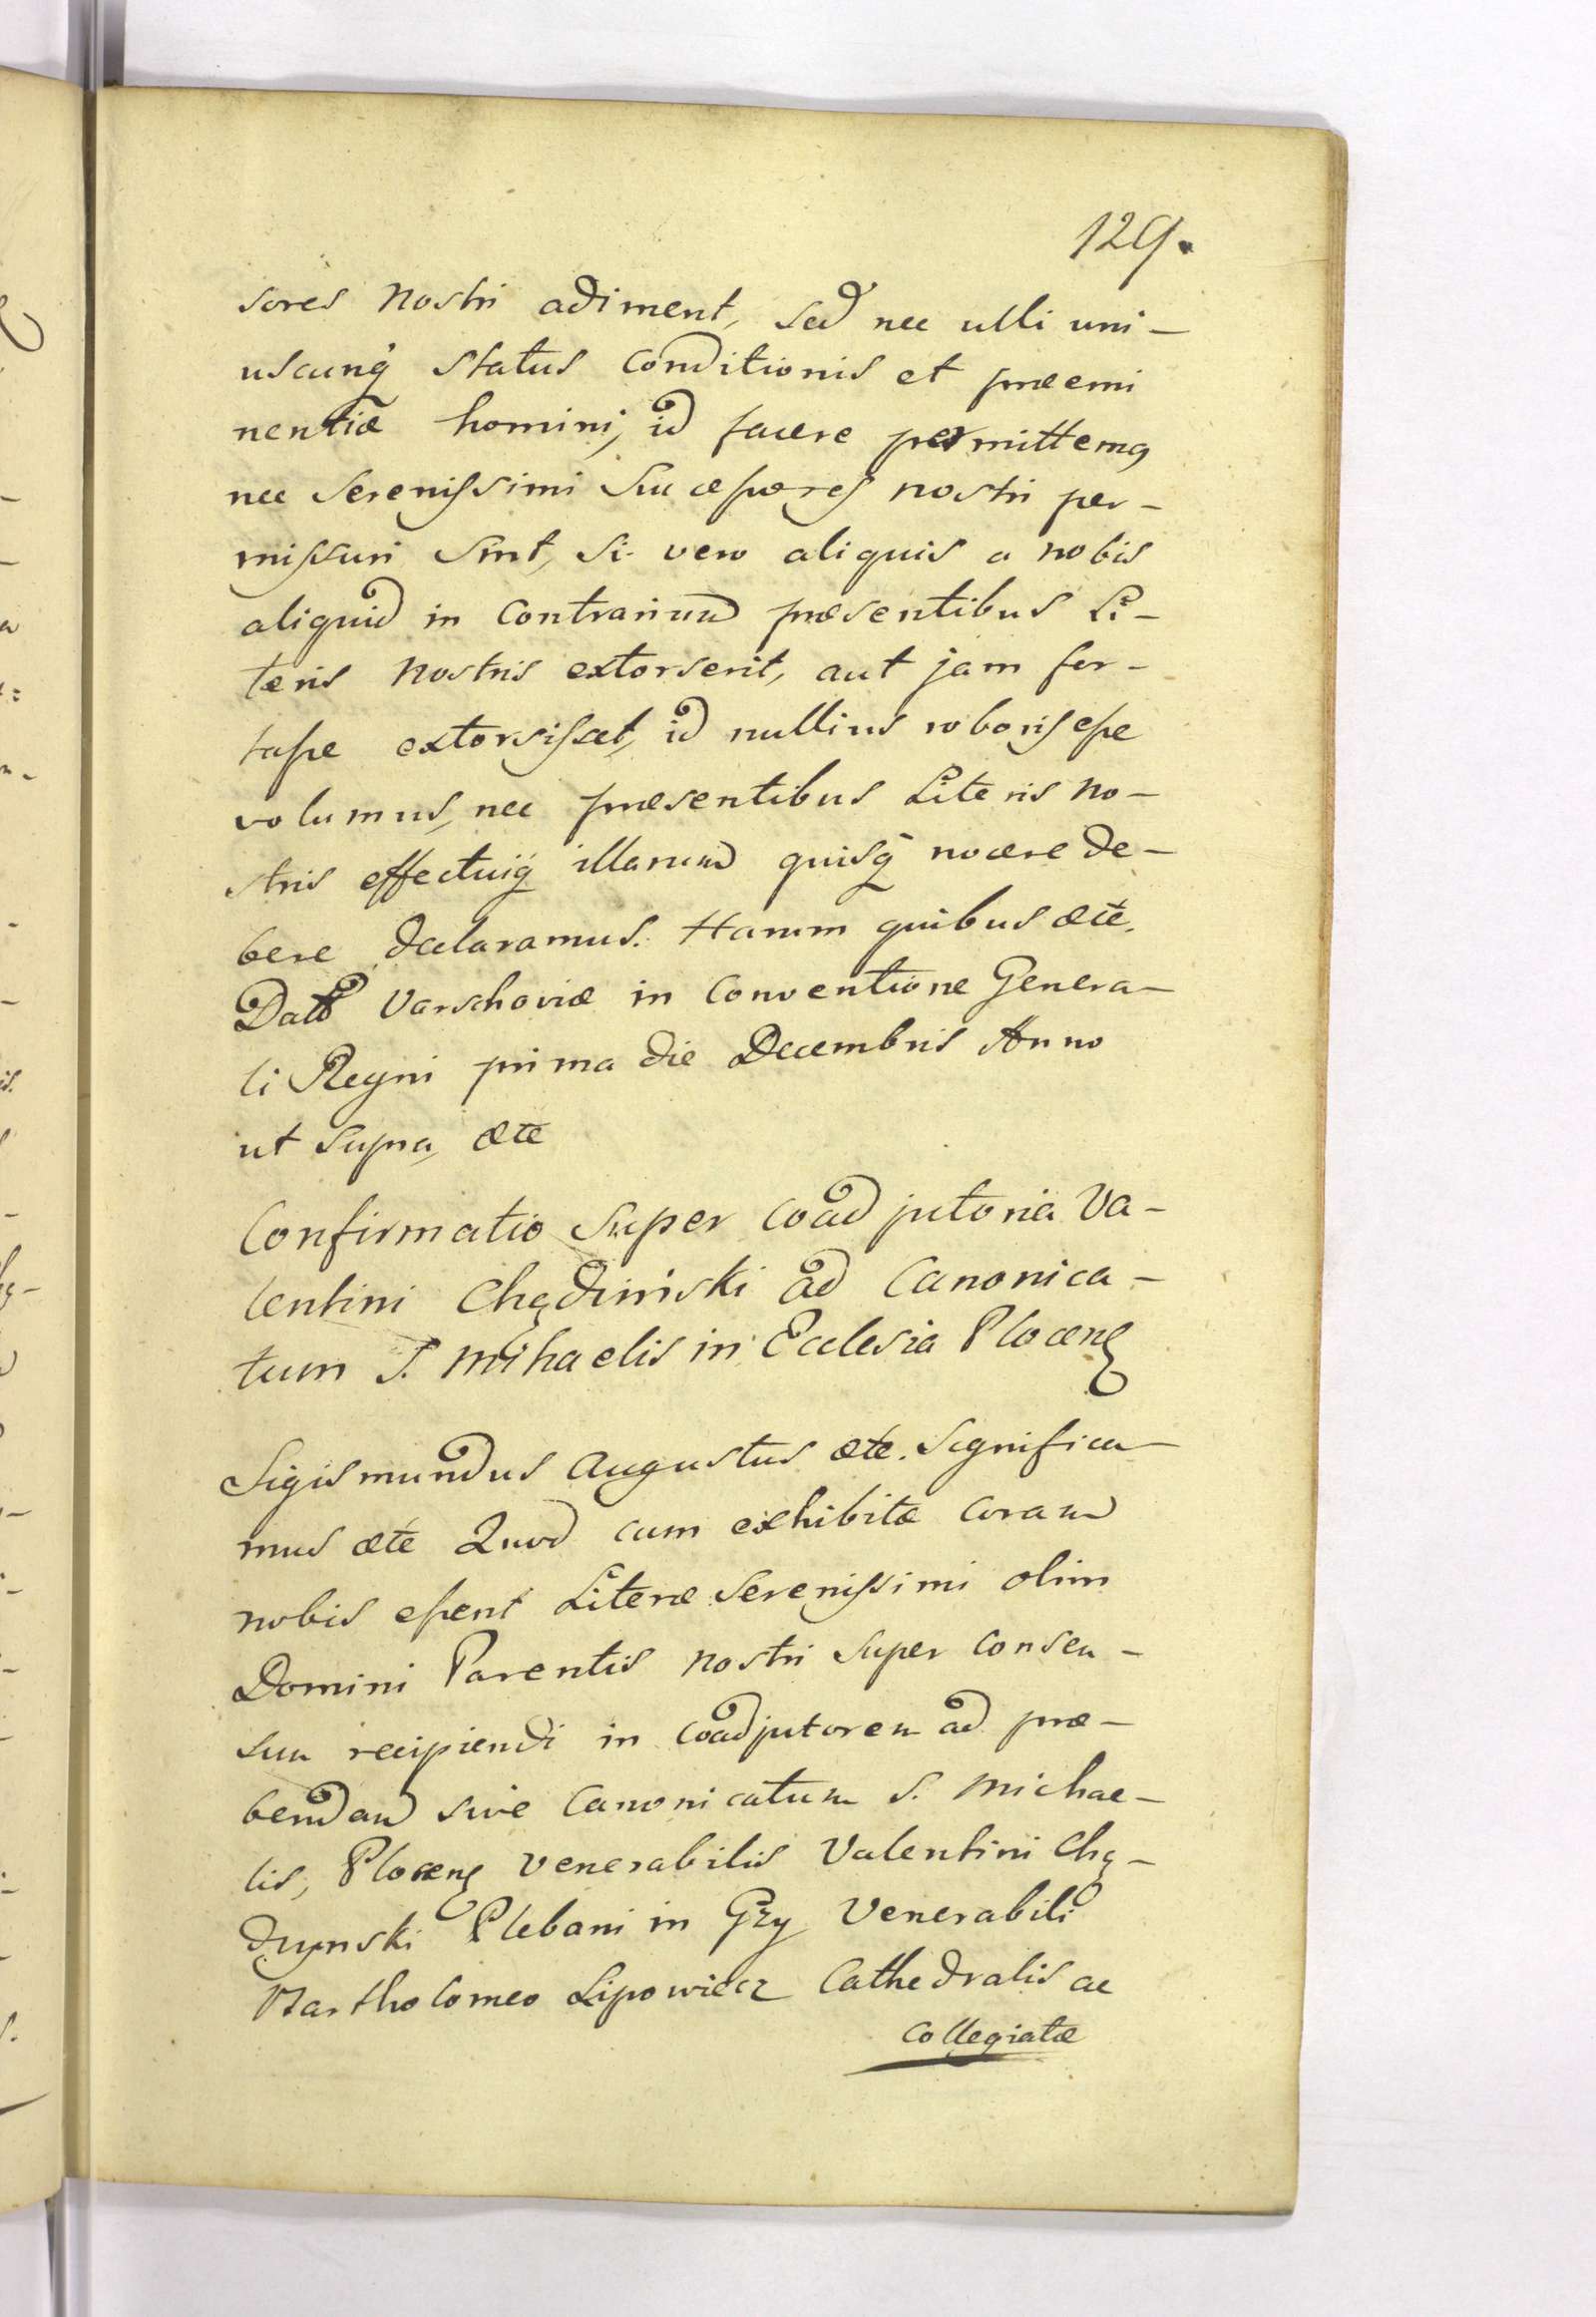 129.
sores nostri adiment, sed nec ulli uni-
uscunq status conditionis et præemi
nentiæ homini, id facere permittemq
nec Serenissimi Successores nostri per-
missuri sint, Si vero aliquis a nobis
aliquid in contrarium præsentibus Li-
teris nostris extorserit, aut jam for-
tasse extorsisset, id nullius roboris esse
volumus, nec præsentibus Literis no-
stris effectuiq illarum quisq nocere de-
bere declaramus. Harum quibus ætc.
Datt Varschoviæ in Conventione Genera-
li Regni prima die Decembris Anno
ut supra, ætc
Confirmatio super coadjutoria Va-
lentini Chądziński ad Canonica-
tum S. Mihaelis in Ecclesia Plocens
Sigismundus Augustus ætc. Significa-
mus ætc Quod cum exhibitæ coram
nobis essent Literæ Serenissimi olim
Domini Parentis nostri super consen-
su recipiendi in coadjutorem ad præ-
bendam sive Canonicatum S. Michae-
lis, Plocens Venerabilis Valentini Chą-
dzynski Plebani in Gzy Venerabili
Bartholomeo Lipowiecz Cathedralis ac
Collegiatæ